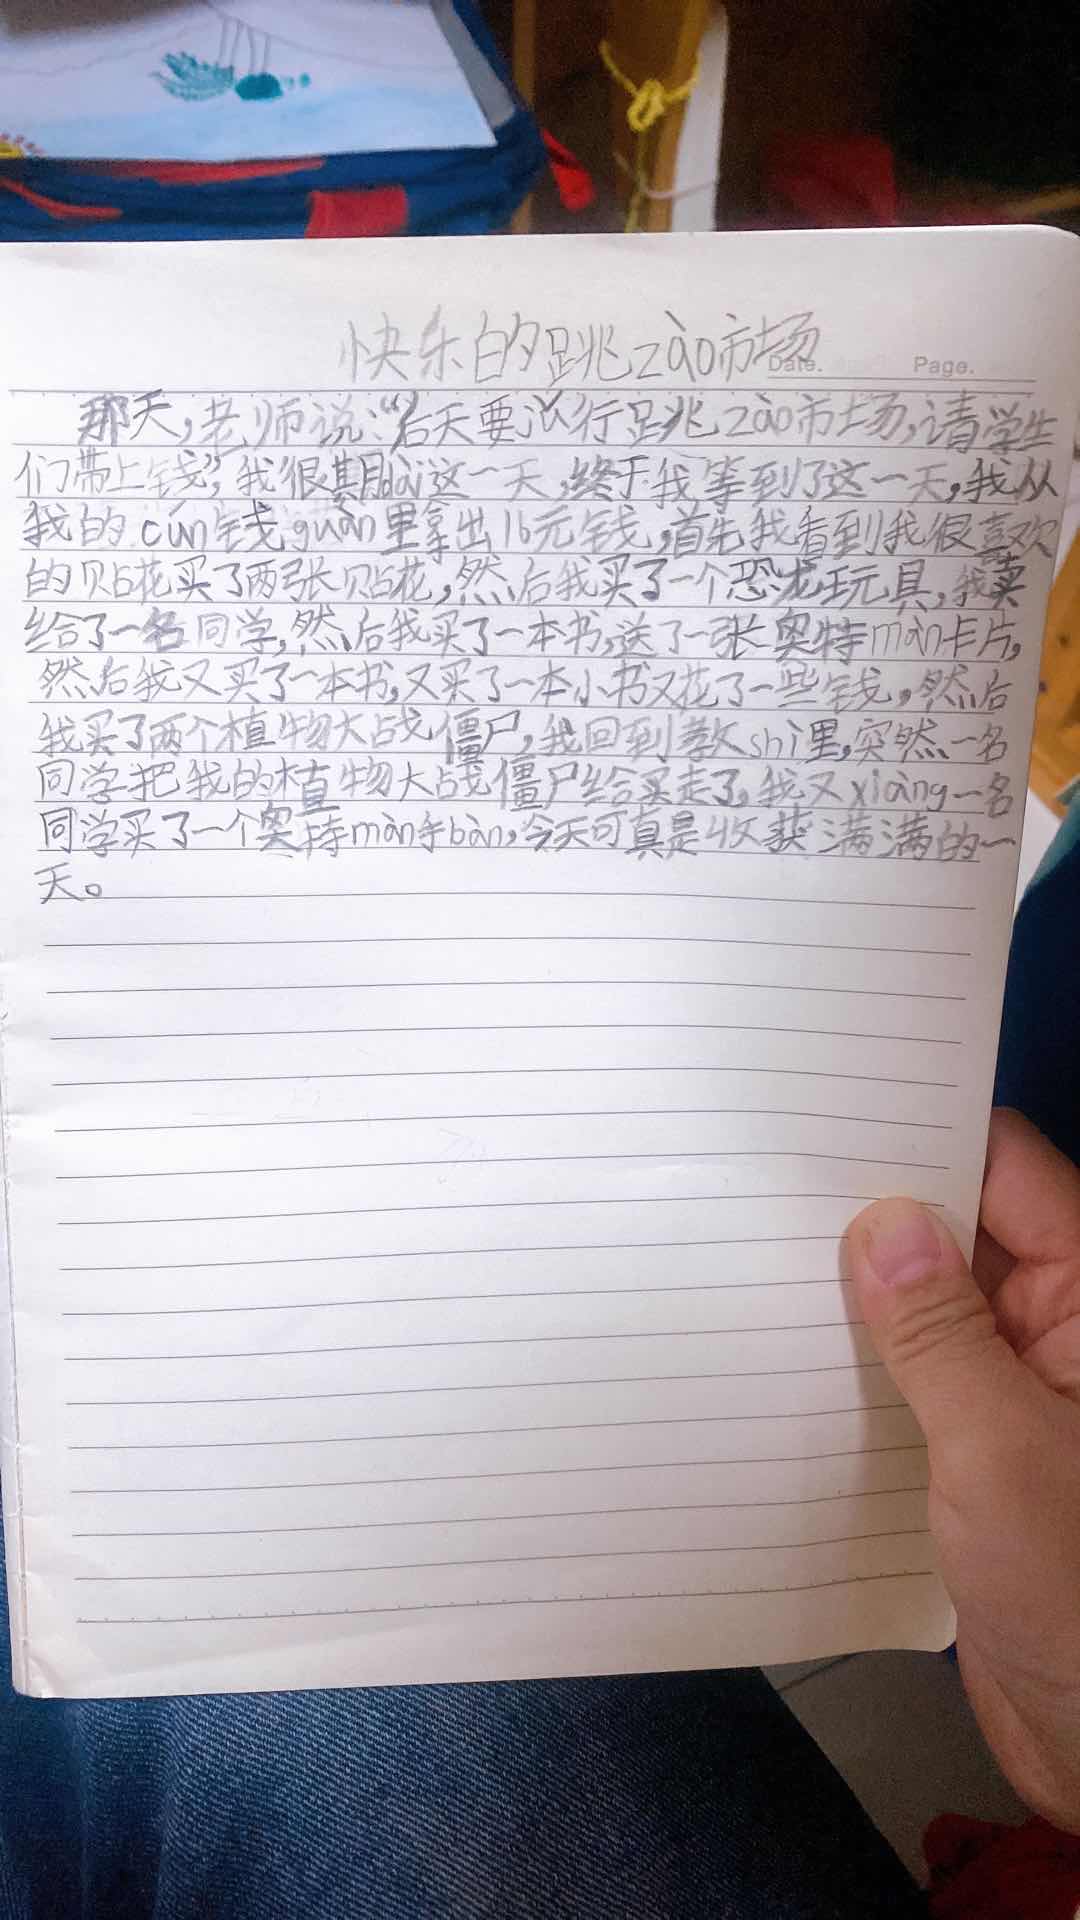 快乐的跳zào市场
Date. Page.
那天,老师说:“后天要行跳zào市场,请学生
们带上钱”,我很期dài这一天,终于我等到了这一天,我从
我的cún钱guàn里拿出16元钱,首先我看到我很喜欢
的贴花买了两张贴花,然后我买了一个恐龙玩具,我卖
给了一名同学,然后我买了一本书,送了一张奥特màn卡片,
然后我又买了一本书,又买了一本小书又花了一些钱,然后
我买了两个植物大战僵尸,我回到教shì里,突然一名
同学把我的植物大战僵尸给买走了,我又xiàng一名
同学买了一个奥持màn手bàn,今天可真是收获满满的一
天。